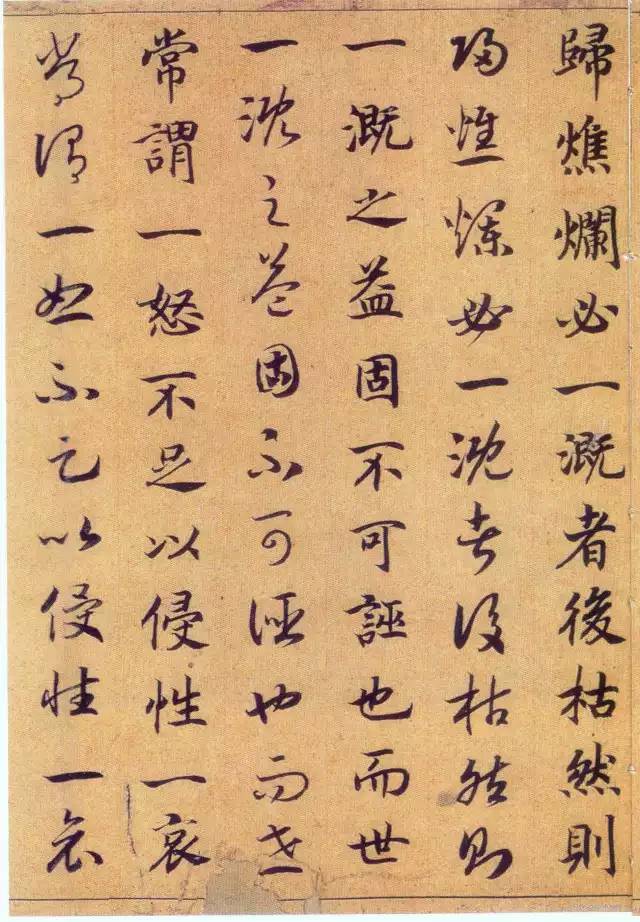 歸燋爛必一溉者後枯然則
歸燋爛必一溉者後枯然則
一溉之益固不可誣也而世
一溉之益固不可誣也而世
常謂一怒不足以侵性一哀
常謂一怒不足以侵性一哀